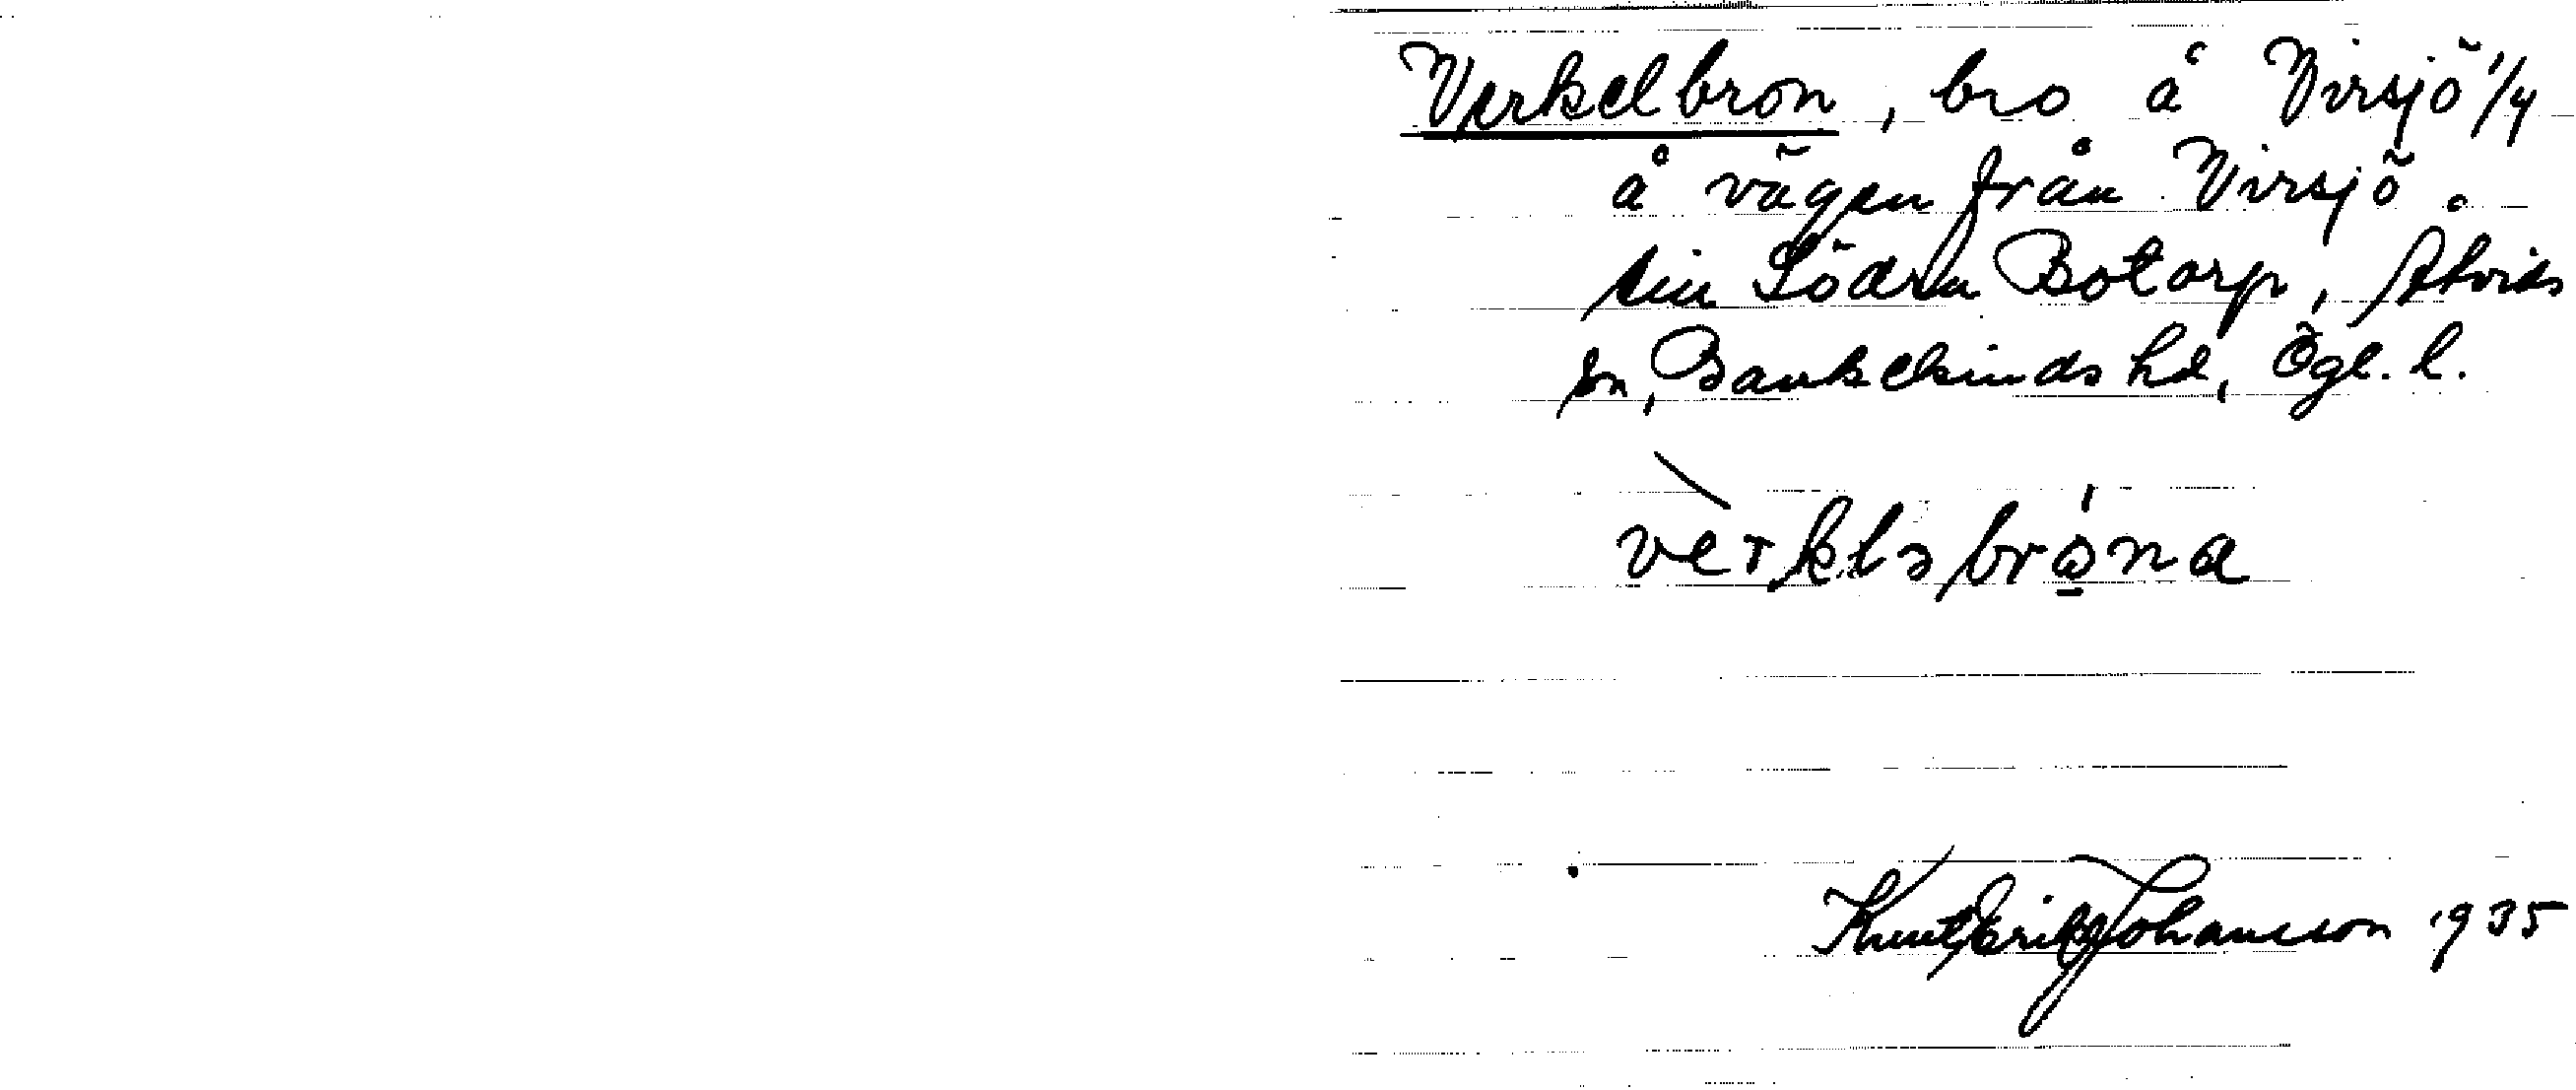 Verkelbron, bro å Virsjö 1/4
å vägen från Virsjö
till Södra Botorp, Åtvids
sn, Bankekinds hd, Ögl. l.
vèrkləbrǻna
Knut Erik Johansson 1935